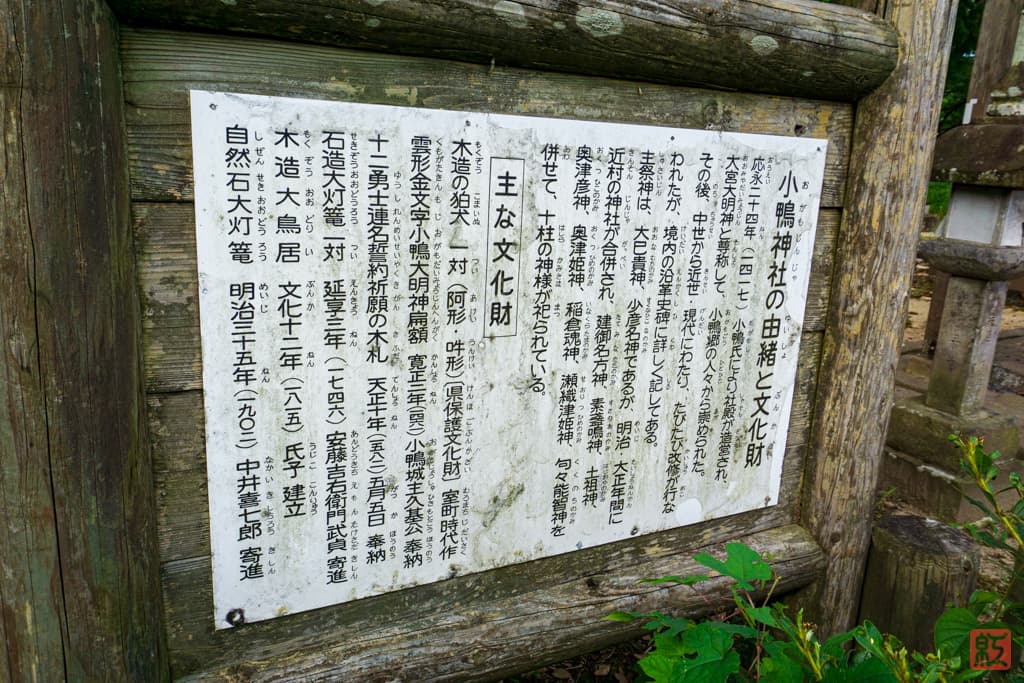 小鴨神社の由緒と文化財
応永二十四年(一四一七)小鴨氏により社殿が造営され、
大宮大明神と尊称して、小鴨郷の人々から崇められた。
その後、中世から近世・現代にわたり、たびたび改修が行な
われたが、境内の沿革史碑に詳しく記してある。
主祭神は、大巳貴神、少彦名神であるが、明治 大正年間に
近村の神社が合併され、建御名方神、素盞鳴神、土祖神、
奥津彦神、奥津姫神、稲倉魂神、瀬織津姫神、句々能智神を
併せて、十柱の神様が祀られている。
主な文化財
木造の狛犬 一対(阿形・吽形)(県保護文化財) 室町時代作
雲形金文字小鴨大明神扁額 寛正年 小鴨城主久基公奉納
十二勇士連名誓約祈願の木札 天正十年(一五八二)五月五日 奉納
石造大灯篭 一対 延享三年(一七四六)安藤吉右衛門武貞 寄進
木造大鳥居 文化十二年(一八一五)氏子 建立
自然石大灯篭 明治三十五年(一九〇二)中井喜七郎 寄進